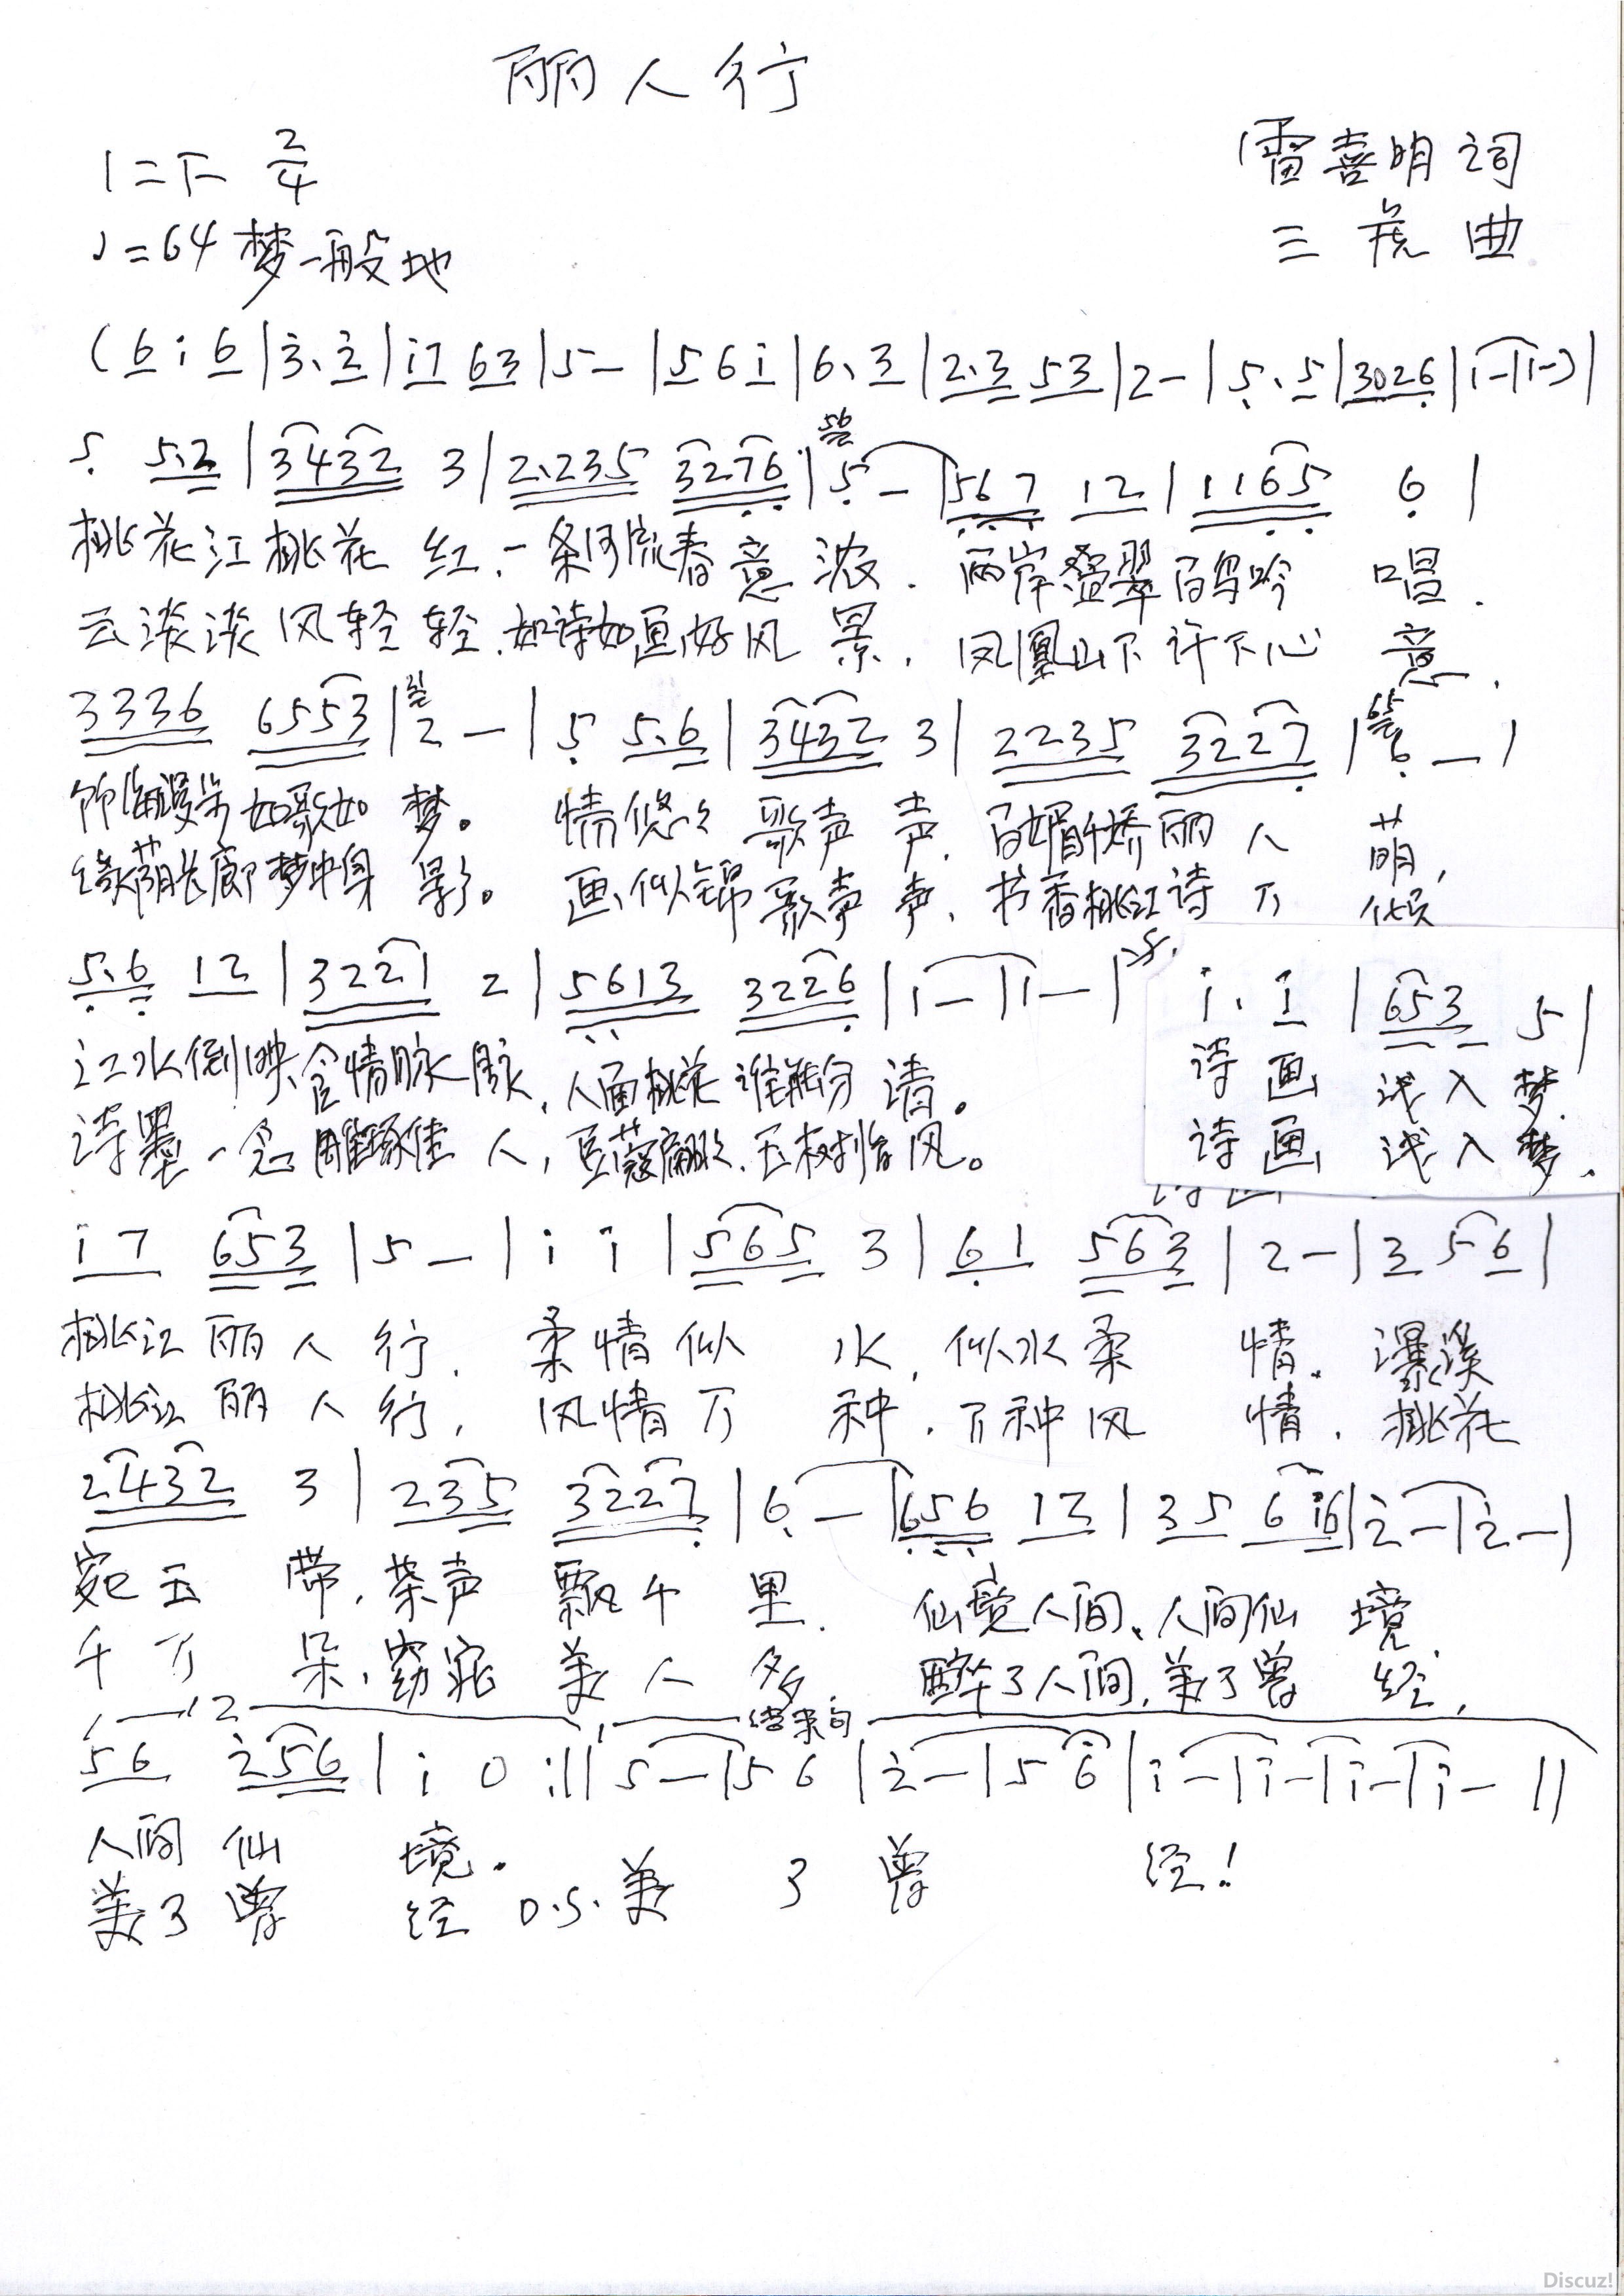 丽人行
1=F 2/4
雷喜明 词
♩=64 梦一般地
三 虎 曲
(6 i 6|3. 2|i7 63|5-|5 6 i|6. 3|2.3 53|2-|5. 5|3026|i-|i-)|
5 5.2|3432 3|2.235 3276|56 5-|567 12|1165 6|
桃花江桃花 红.一条河流春意 浓. 两岸叠翠百鸟吟 唱.
云淡淡风轻 轻.如诗如画好风 景. 凤凰山下许下心 意.
3336 6553|2-|5 5.6|3432 3|2235 3227|65 6-|
如歌如 梦。 情悠々歌声 声.百媚千娇丽 人 萌,
绿荫长廊梦中身 影。 画似锦歌声 声.书香桃江诗 万 倾
5.6 12|3221 2|5613 3226|i-|i-| i. i|653 5|
江水倒映含情脉 脉.人面桃花谁能分 清。 诗 画 浅 入 梦.
诗墨一念雕琢佳 人,豆蔻翩々.玉树临 风。 诗 画 浅 入 梦.
i7 653|5-|i i|565 3|61 563|2-|3 5 6|
桃江丽人 行. 柔情似 水.似水柔 情. 瀑溪
桃江丽人 行, 风情万 种.万种风 情. 桃花
2432 3|235 3227|6-|656 12|35 6i6|2-|2-|
宛玉 带.茶声 飘千 里. 仙境人间.人间仙 境.
千万 朵.窈窕 美人 多. 醉了人间.美了曾 经.
1 2 结束句
56 256|i 0:||5-|5 6|2-|5 6|i-|i-|i-|i-||
人间 仙 境.
美了 曾 经 D.S. 美 了 曾 经!
Discuz!